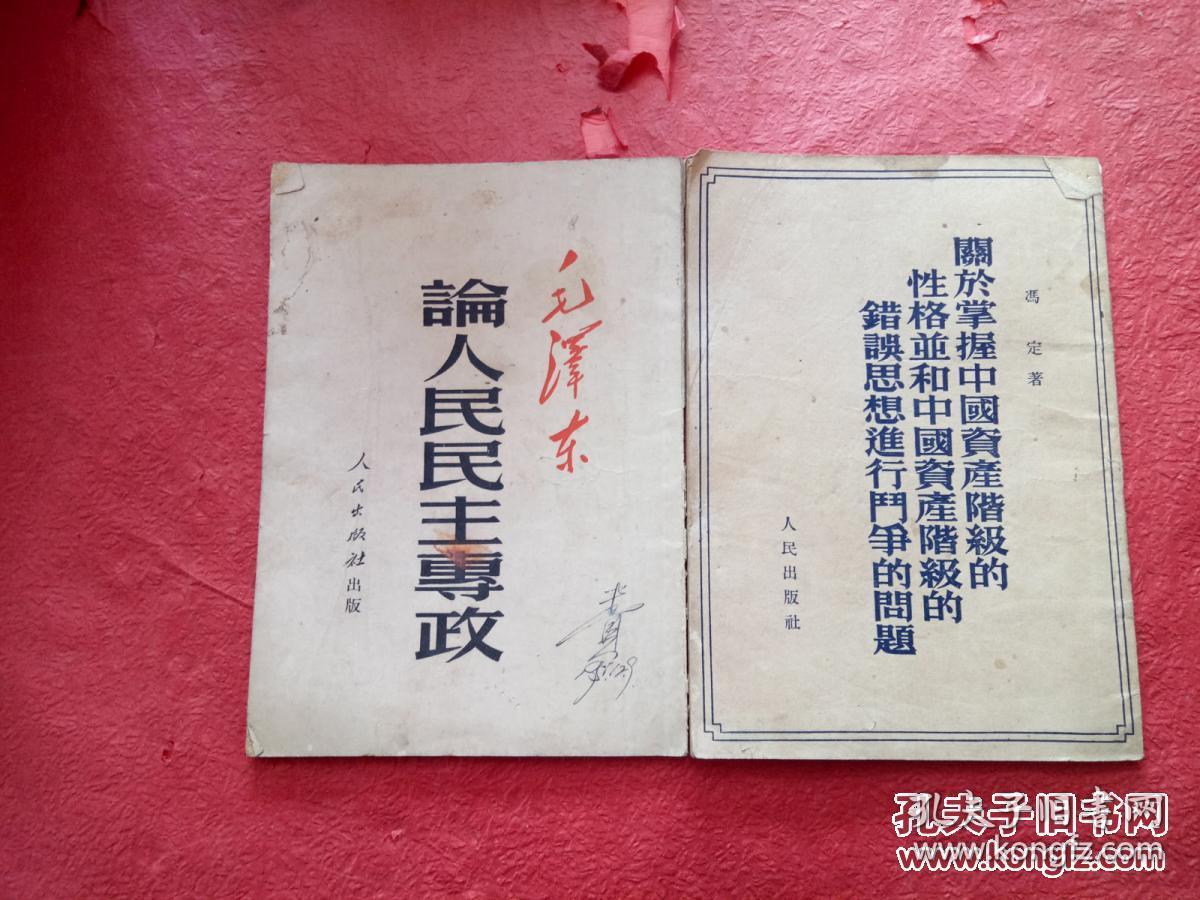 毛澤东
論人民民主專政
人民出版社出版
馮定著
關於掌握中國資產階級的
性格並和中國資產階級的
錯誤思想進行鬥爭的問題
人民出版社
孔夫子旧书网
www.kongfz.com